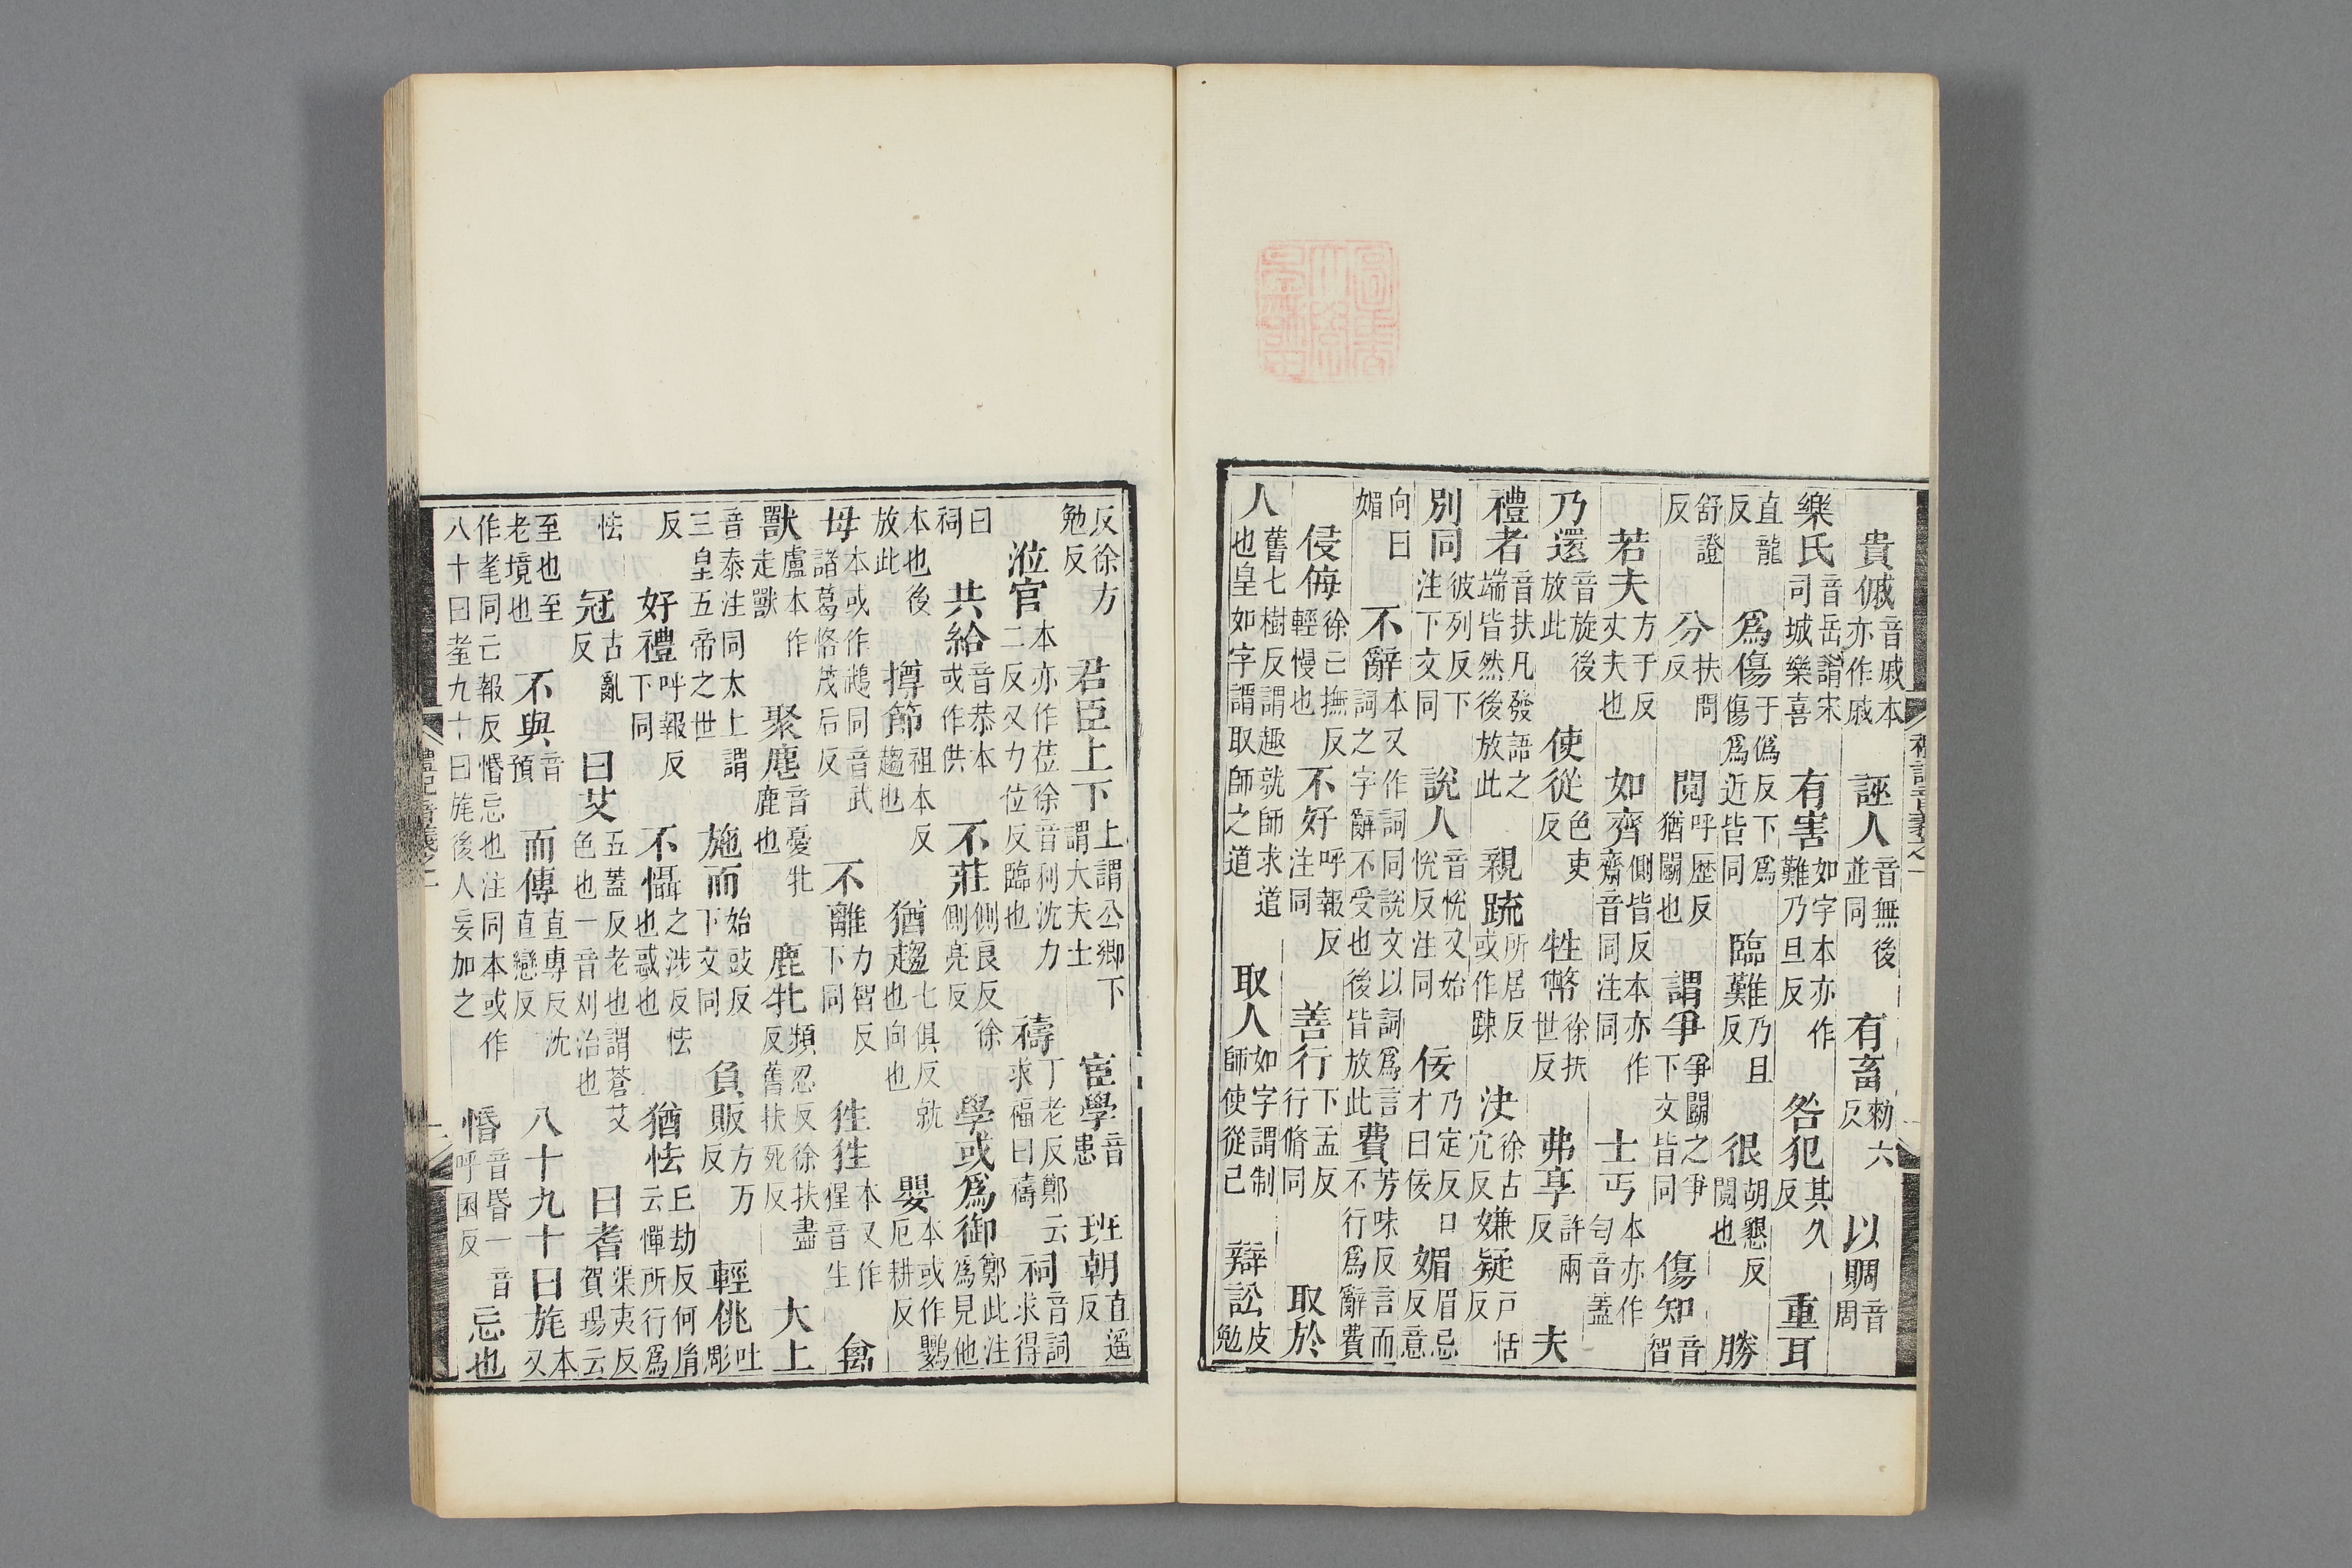 貴傶音戚本亦作戚 誣人音無後並同 有畜勑六反 以賙音周
樂氏音岳謂宋司城樂喜 有害如字本亦作難乃旦反 咎犯其久反 重耳
直龍反 爲傷于僞反下爲傷爲近皆同 臨難乃旦反 很胡懇反鬩也 勝
舒證反 分扶問反 鬩呼歷反猶鬬也 謂爭爭鬬之爭下文皆同 傷知音智
若夫方于反丈夫也 如齊側皆反本亦作齋音同注同 士丐本亦作匄音蓋
乃還音旋後放此 使從色吏反 牲幣徐扶世反 弗享許兩反 夫
禮者音扶凡發語之端皆然後放此 親䟽所居反或作踈 決徐古穴反 嫌疑戸恬反
別同彼列反下注下文同 說人音悅又始悅反注同 佞乃定反口才曰佞 媚眉忌反意
向曰媚 不辭本又作詞同說文以詞爲言詞之字辭不受也後皆放此 費芳味反言而不行爲辭費
侵侮徐亡撫反輕慢也 不好呼報反注同 善行下孟反行脩同 取於
人舊七樹反謂趣就師求道也皇如字謂取師之道 取人如字謂制師使從己 辯訟皮勉
反徐方勉反 君臣上下上謂公卿下謂大夫士 宦學音患 班朝直遥反
涖官本亦作莅徐音利沈力二反又力位反臨也 禱丁老反鄭云求福曰禱 祠音詞求得
曰祠 共給音恭本或作供 不莊側良反徐側亮反 學或爲御鄭此注爲見他
本也後放此 撙節祖本反趨也 猶趨七俱反就也向也 嬰本或作鸚厄耕反
母本或作䳇同音武諸葛恪茂后反 不離力智反下同 狌狌本又作猩音生 禽
獸盧本作走獸 聚麀音憂牝鹿也 鹿牝頻忍反徐扶盡反舊扶死反 大上
音泰注同太上謂三皇五帝之世 施而始豉反下文同 負販方万反 輕佻吐彫
反 好禮呼報反下同 不懾之涉反怯也惑也 猶怯丘劫反何胤云憚所行爲
怯 冠古亂反 曰艾五蓋反老也謂蒼艾色也一音刈治也 曰耆渠夷反賀瑒云
至也至老境也 不與音預 而傳直專反沈直戀反 八十九十曰旄本又
作耄同亡報反惛忘也注同本或作八十曰耋九十曰旄後人妄加之 惛音昬一音呼困反 忘也
禮記音義之一